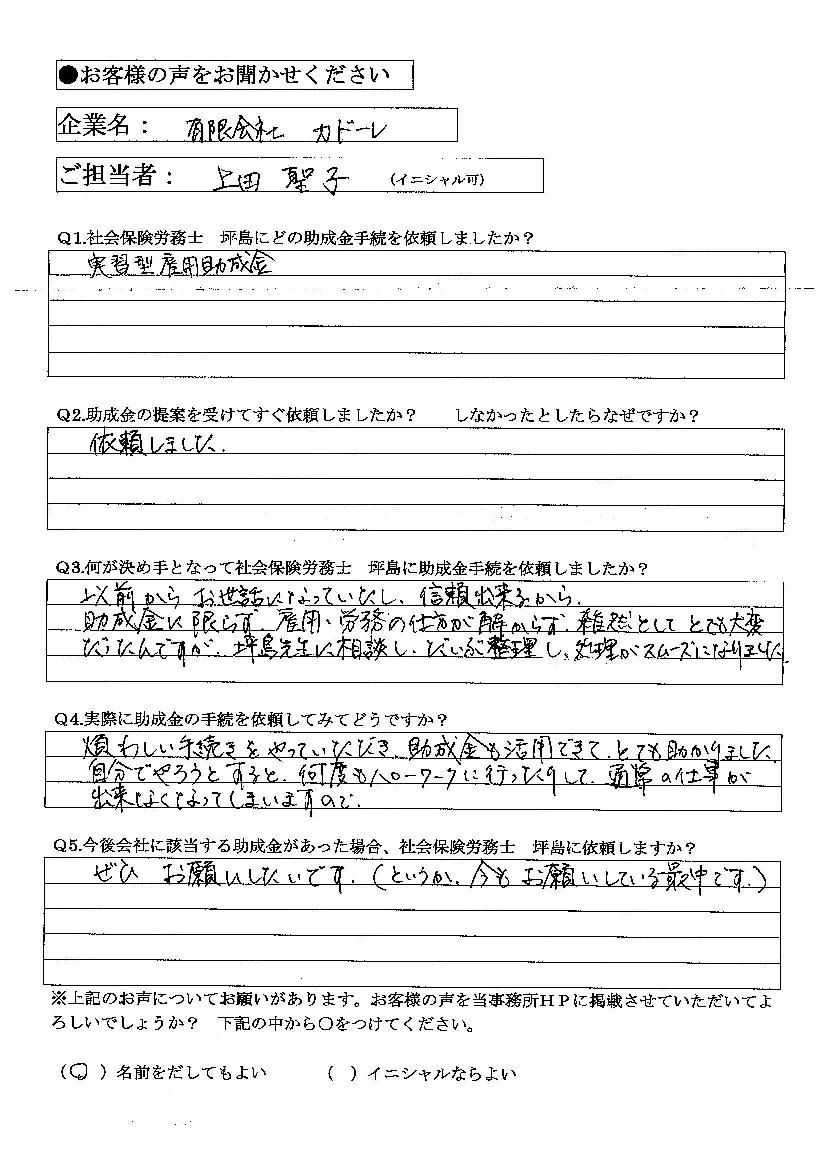 ●お客様の声をお聞かせください
企業名： 有限会社 カドーレ
ご担当者： 上田 聖子 （イニシャル可）
Q1.社会保険労務士 坪島にどの助成金手続を依頼しましたか？
実習型雇用助成金
Q2.助成金の提案を受けてすぐ依頼しましたか？ しなかったとしたらなぜですか？
依頼しました.
Q3.何が決め手となって社会保険労務士 坪島に助成金手続を依頼しましたか？
以前から お世話になっていたし、信頼出来るから.
助成金に限らず、雇用・労務の仕方が解からず、雑然として とても大変
だったんですが、坪島先生に相談し、だいぶ整理し、処理がスムーズになりました
Q4.実際に助成金の手続を依頼してみてどうですか？
煩わしい手続きをやっていただき、助成金も活用できて、とても助かりました.
自分でやろうとすると、何度もハローワークに行ったりして、通常の仕事が
出来なくなってしまいますので.
Q5.今後会社に該当する助成金があった場合、社会保険労務士 坪島に依頼しますか？
ぜひ お願いしたいです.（というか、今も お願いしている最中です.）
※上記のお声についてお願いがあります。お客様の声を当事務所ＨＰに掲載させていただいてよ
ろしいでしょうか？ 下記の中から○をつけてください。
（○ ）名前をだしてもよい （ ）イニシャルならよい